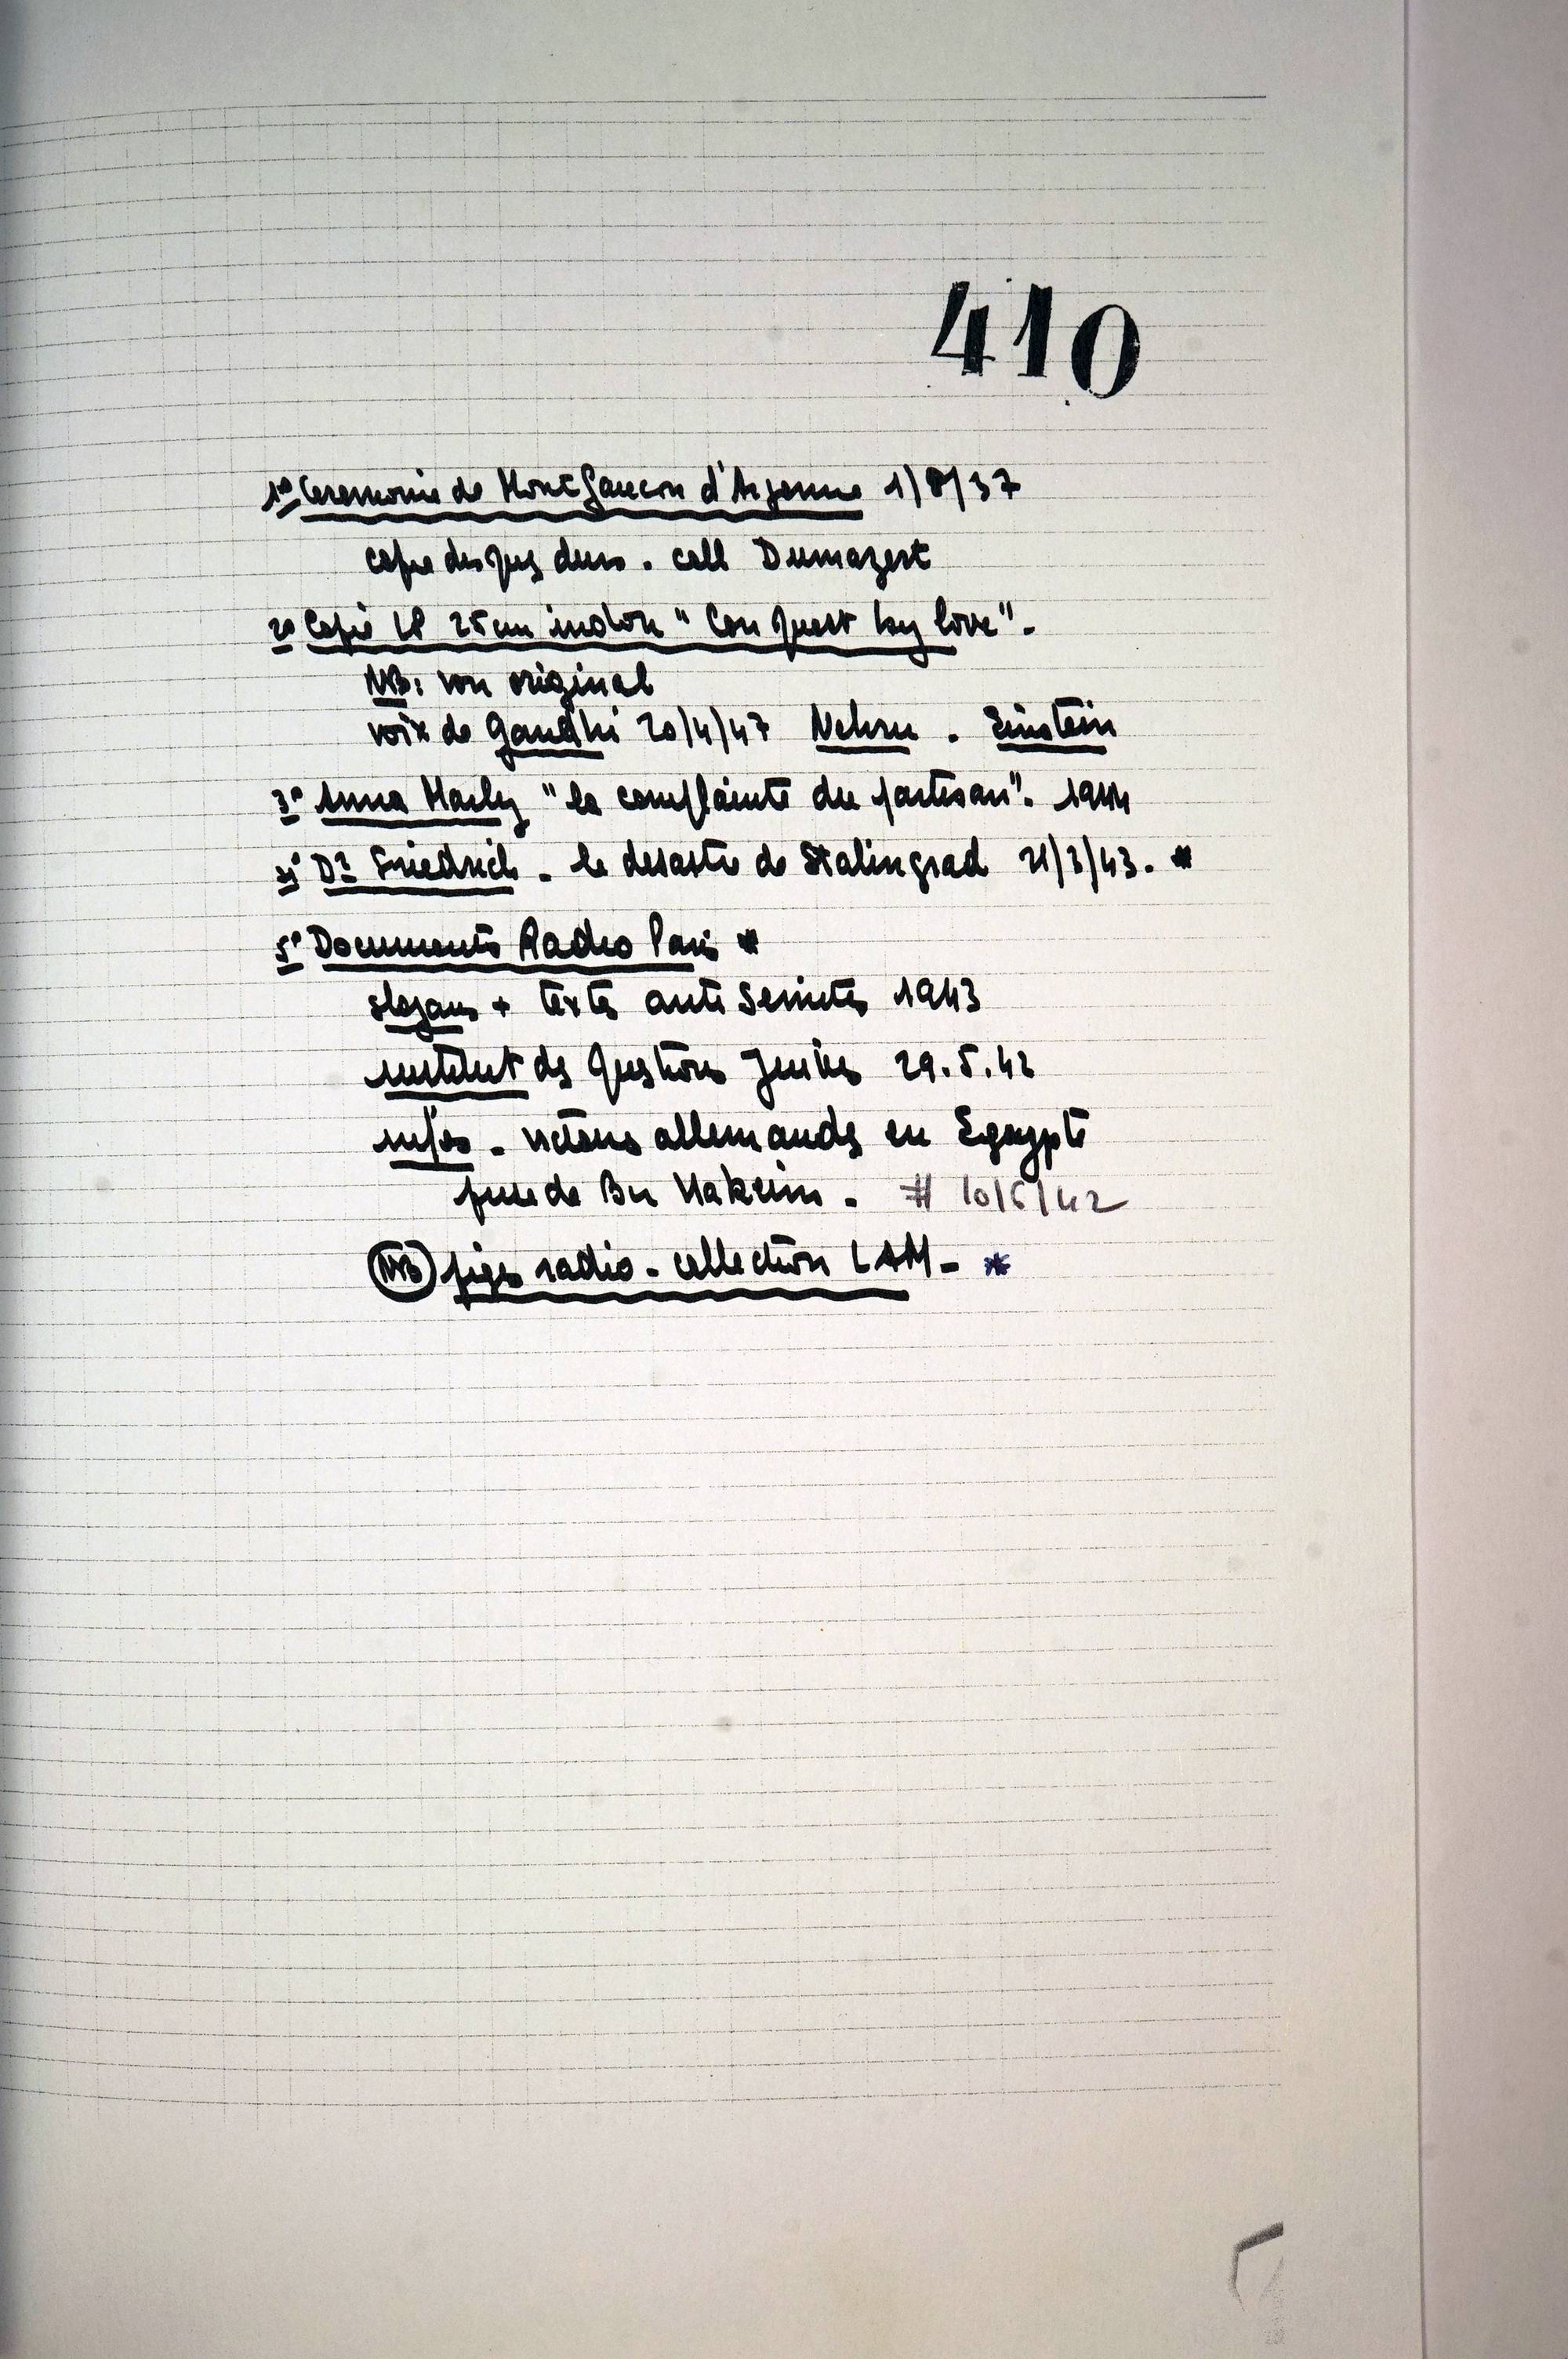 410
1º Ceremonie de Montfaucon d'Argonne 1/8/37
copie disques durs. coll Dumazert
2º Copie LP 25 cm indou "Conquest by love".
NB: von original
voix de Gandhi 20/4/47 Nehru. Einstein
3º Anna Marly "la complainte du partisan". 1944
4º Dr Friedrich - le desastre de Stalingrad 21/3/43. *
5º Documents Radio Paris *
slogans + textes anti Semites 1943
institut des Questions Juives 29.5.42
infos - victoires allemandes en Egypte
prise de Bir Hakeim - # 10/6/42
NB piges radio - collection LAM - *